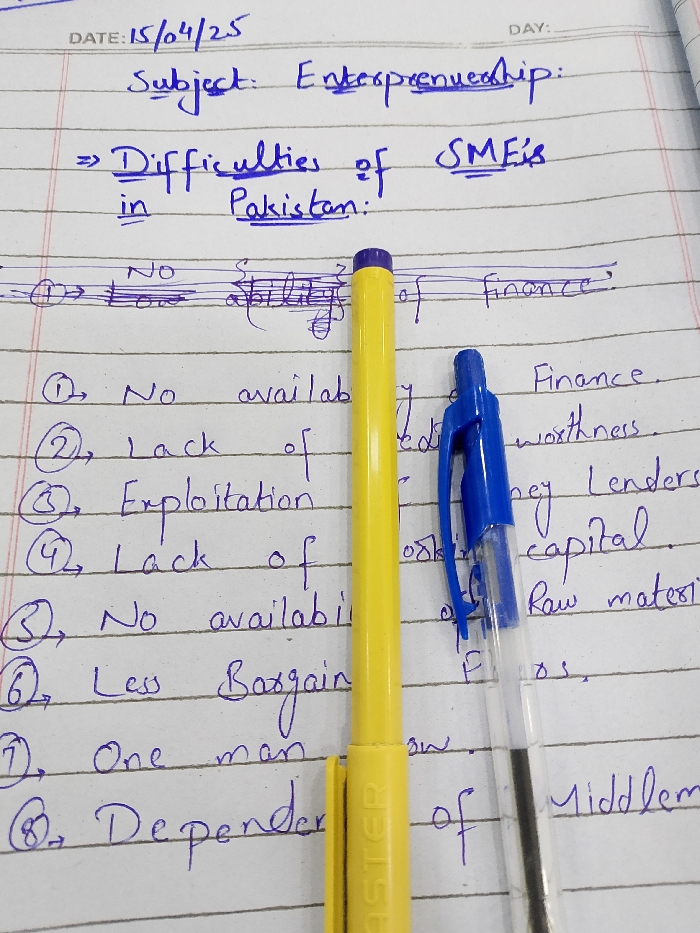 DATE: 15/04/25 DAY:
Subject: Enterprenuership:
⇒ Difficulties of SME's
in Pakistan:
① No ability of finance
① No availab y Finance.
② Lack of edi worthness.
③ Exploitation ney Lenders
④ Lack of orki capital.
⑤ No availabi of Raw materi
⑥ Less Bargain F rs.
⑦ One man ow.
⑧ Depender of Middlem
ASTER